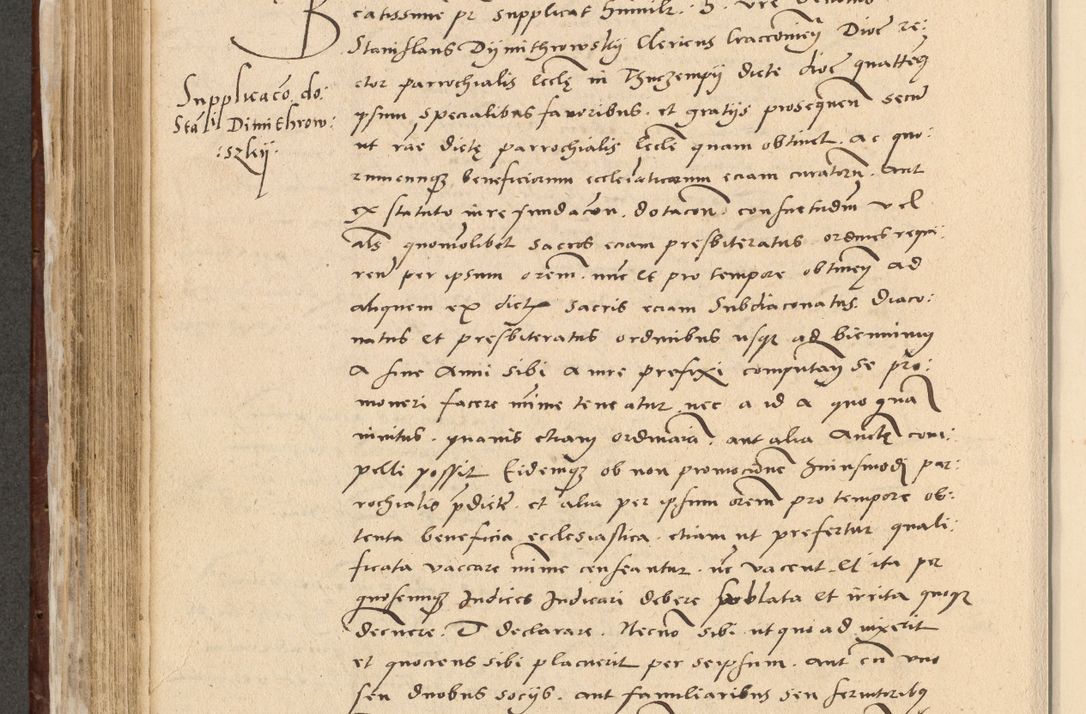 B catissime pr supplicat humilr S. vre devotus
Stanislaus Dymithrowsky Clericus Craccovien Dioc re-
ctor parrochialis Ecclę in dicte dioc quatteṅ
ipsum specialibus favoribus et gratijs prosequen secu
ut rae dictę parrochialis Eccle quam obtinet. ac quo:
rumcunqȝ beneficiorum ecclesiasticorum eciam curatoru. aut
ex statuto iure fundacon. dotacon. consuetudin vel
als quomolibet sacros eciam presbiteratus ordines requi:
ren per ipsum orem. nunc et pro tempore obtinen ad
aliquem ex dictis sacris eciam Subdiaconatus. Diaco:
natus et presbiteratus ordinibus usqȝ ad biennium
a fine Anni sibi a iure prefixi computan se pro:
moveri facere mime teneatur nec a id a quoqua
invitus. quavis etiam ordinaria. aut alia Aucte com:
pelli possit Eidemqȝ ob non promocione huiusmodi par:
rochialis pdicte. et alia per ipsum orem pro tempore ob:
tenta beneficia ecclesiastica. etiam ut prefertur quali:
ficata vaccare mime censeantur. nec vacent. et ita per
quoscunqȝ Judices Judicari debere sublata et irrita quoqȝ
decernere. et declarare. Necno sibi. ut quo ad vixerit
et quociens sibi placuerit per seipsum. aut cu uno
seu duobus socijs. aut familiaribus seu servitoribȝ
Supplicaco do:
Stali Dimithrow:
:szkij: